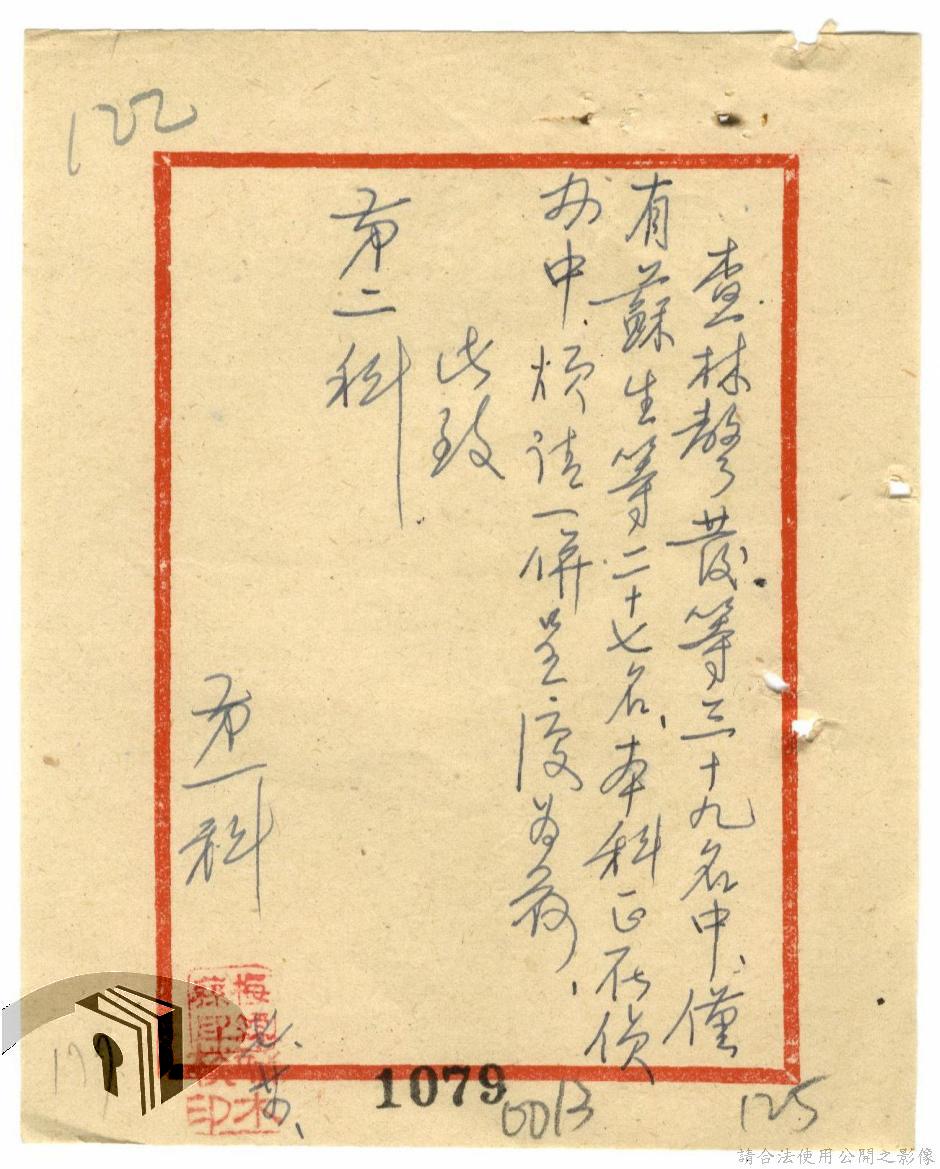 122
查林聲發等三十九名中、僅
有蘇生等二十七名、本科正在偵
办中、煩請一併呈復為荷、
此致
第二科
第一科
1079
0013
125
請合法使用公開之影像